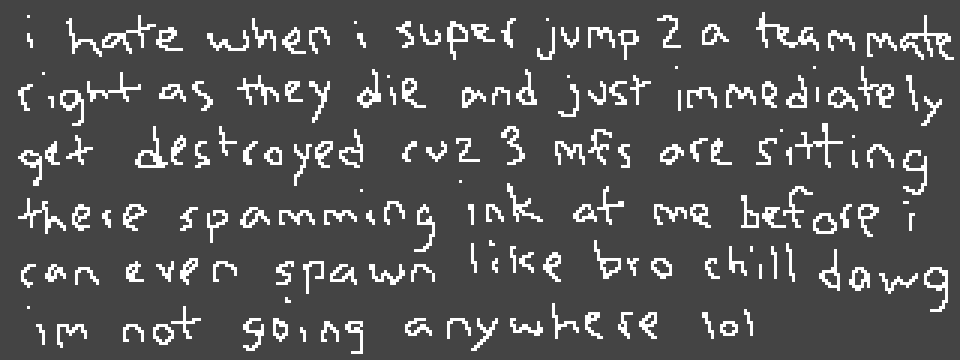 i hate when i super jump 2 a teammate
right as they die and just immediately
get destroyed cuz 3 mfs are sitting
there spamming ink at me before i
can even spawn like bro chill dawg
im not going anywhere lol